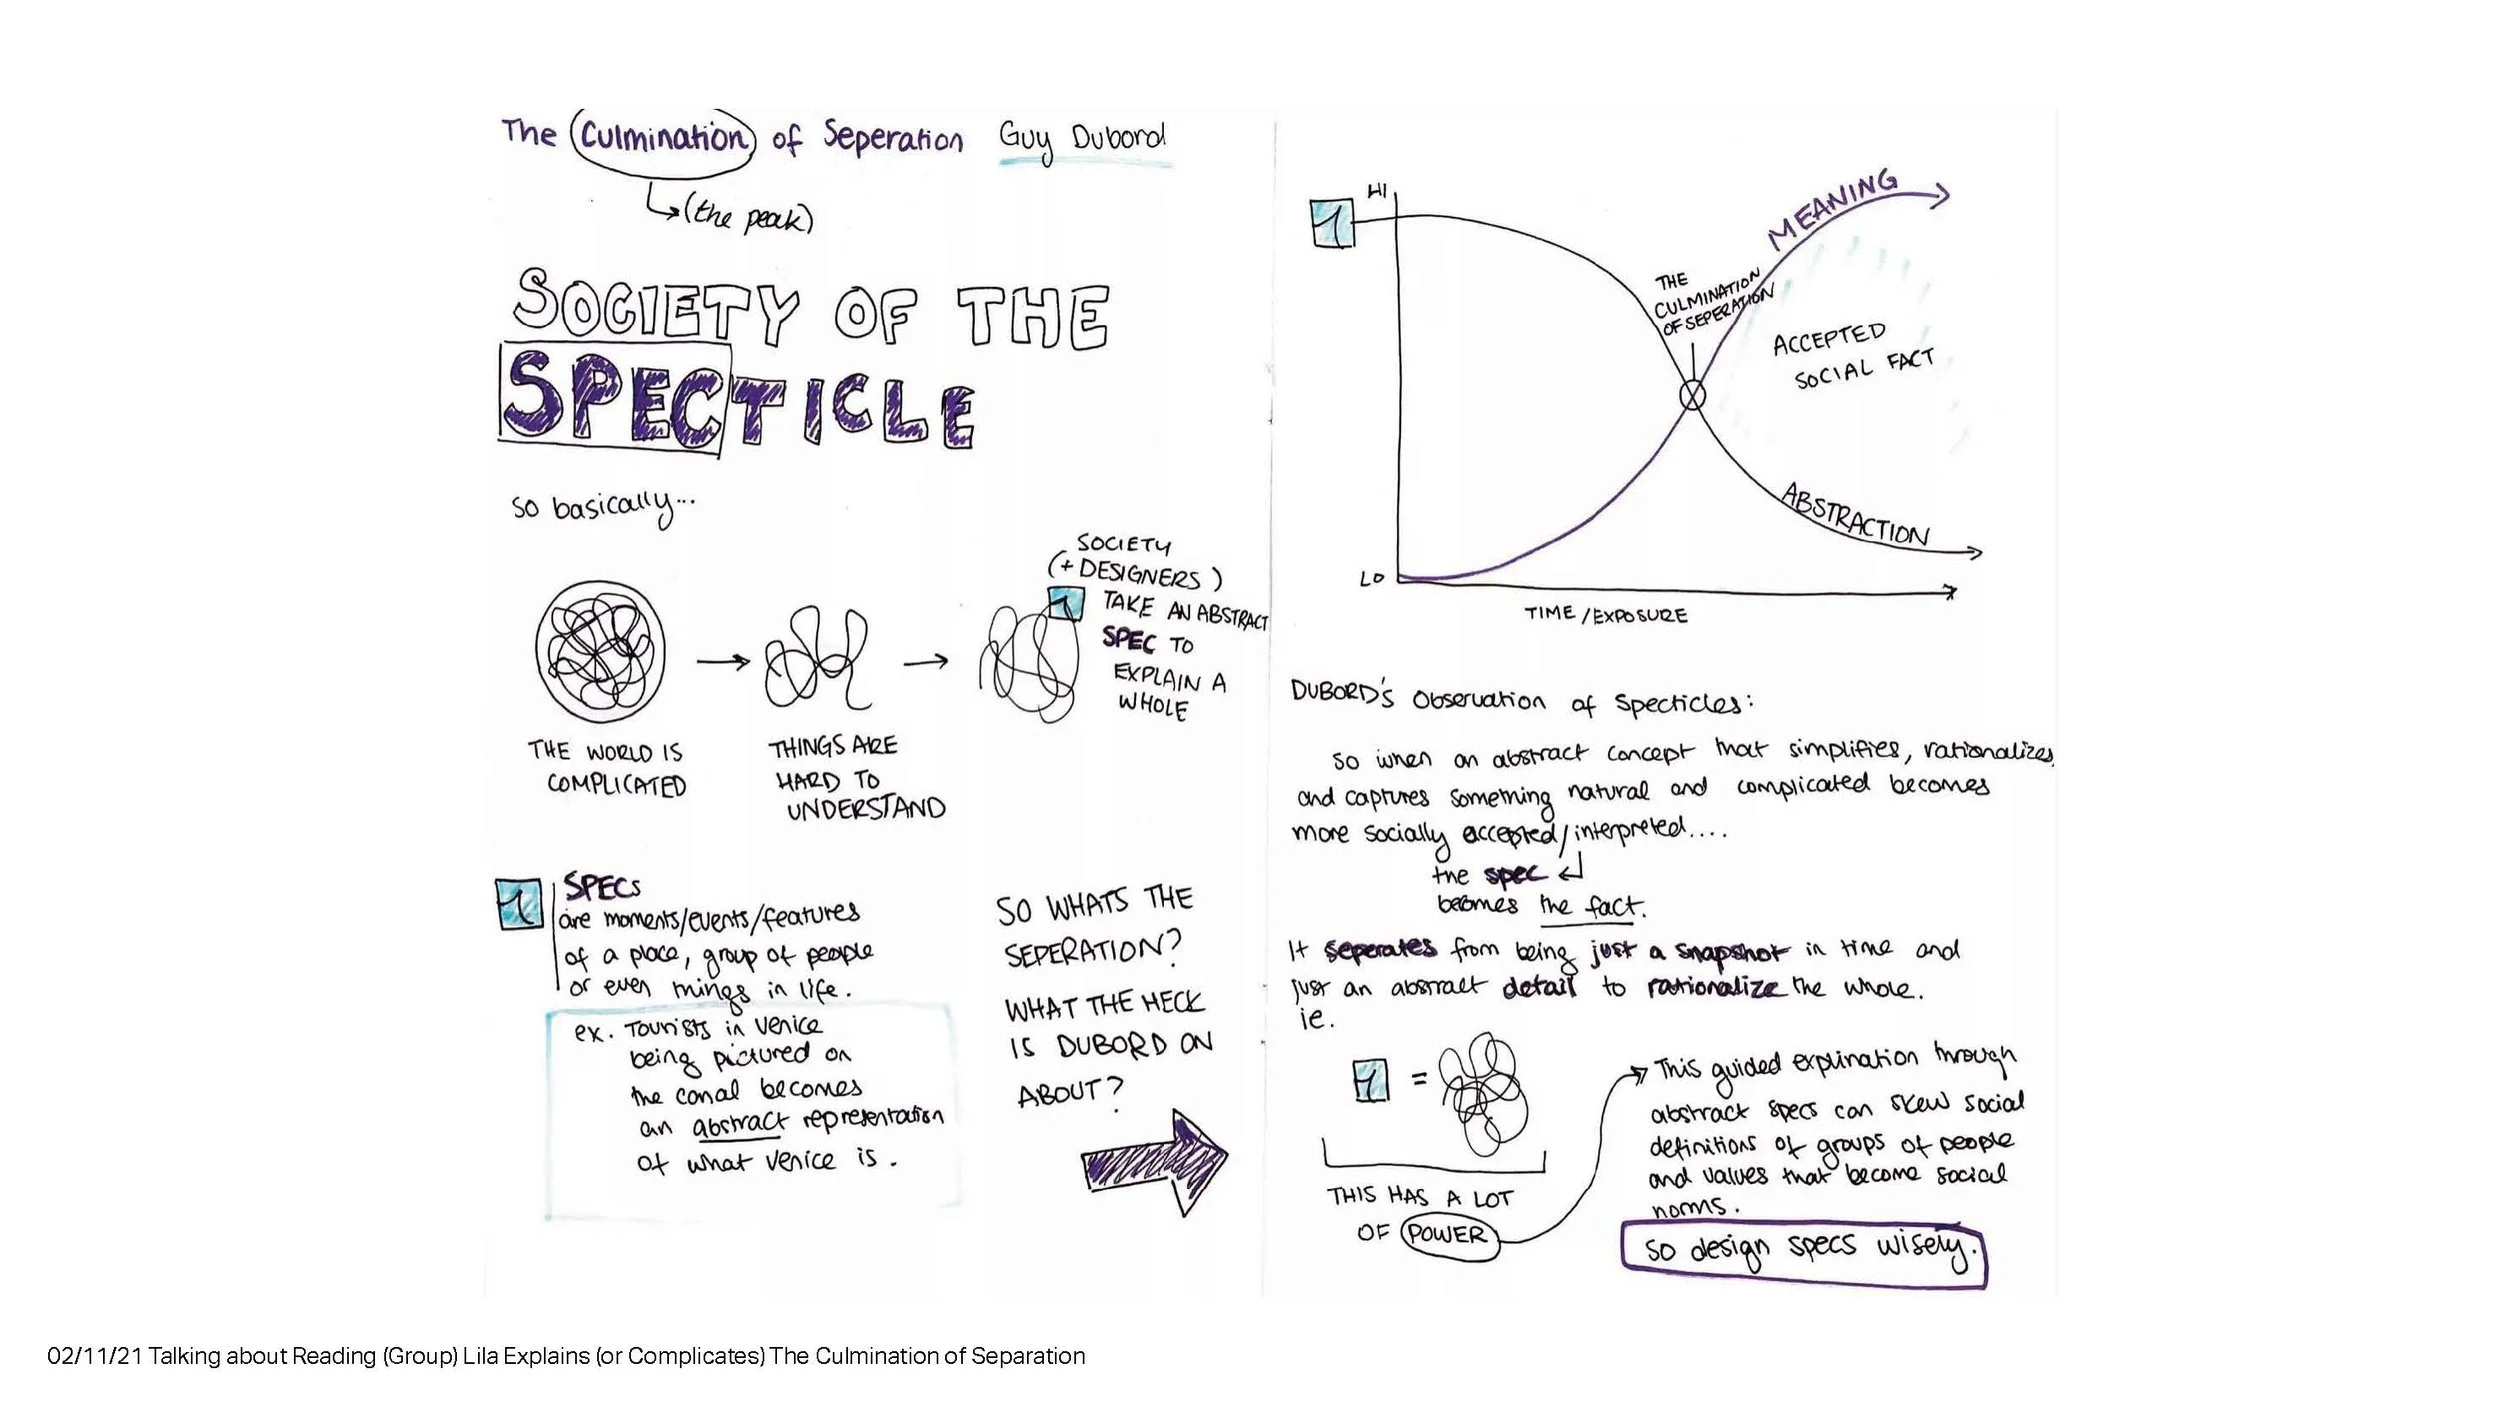 The Culmination of Seperation Guy Dubord
(the peak)
SOCIETY OF THE
SPECTICLE
so basically...
THE WORLD IS
COMPLICATED
THINGS ARE
HARD TO
UNDERSTAND
SOCIETY
(+ DESIGNERS)
1 TAKE AN ABSTRACT
SPEC TO
EXPLAIN A
WHOLE
1 SPECs
are moments/events/features
of a place, group of people
or even things in life.
ex. Tourists in Venice
being pictured on
the canal becomes
an abstract representation
of what Venice is.
SO WHATS THE
SEPERATION?
WHAT THE HECK
IS DUBORD ON
ABOUT?
HI
1
MEANING
THE
CULMINATION
OF SEPERATION
ACCEPTED
SOCIAL FACT
ABSTRACTION
LO
TIME/EXPOSURE
DUBORD'S Observation of Specticles:
so when an abstract concept that simplifies, rationalizes,
and captures something natural and complicated becomes
more socially accepted/interpreted....
the spec
becomes the fact.
It seperates from being just a snapshot in time and
just an abstract detail to rationalize the whole.
ie.
1 =
THIS HAS A LOT
OF POWER
This guided explination through
abstract specs can skew social
definitions of groups of people
and values that become social
norms.
so design specs wisely.
02/11/21 Talking about Reading (Group) Lila Explains (or Complicates) The Culmination of Separation